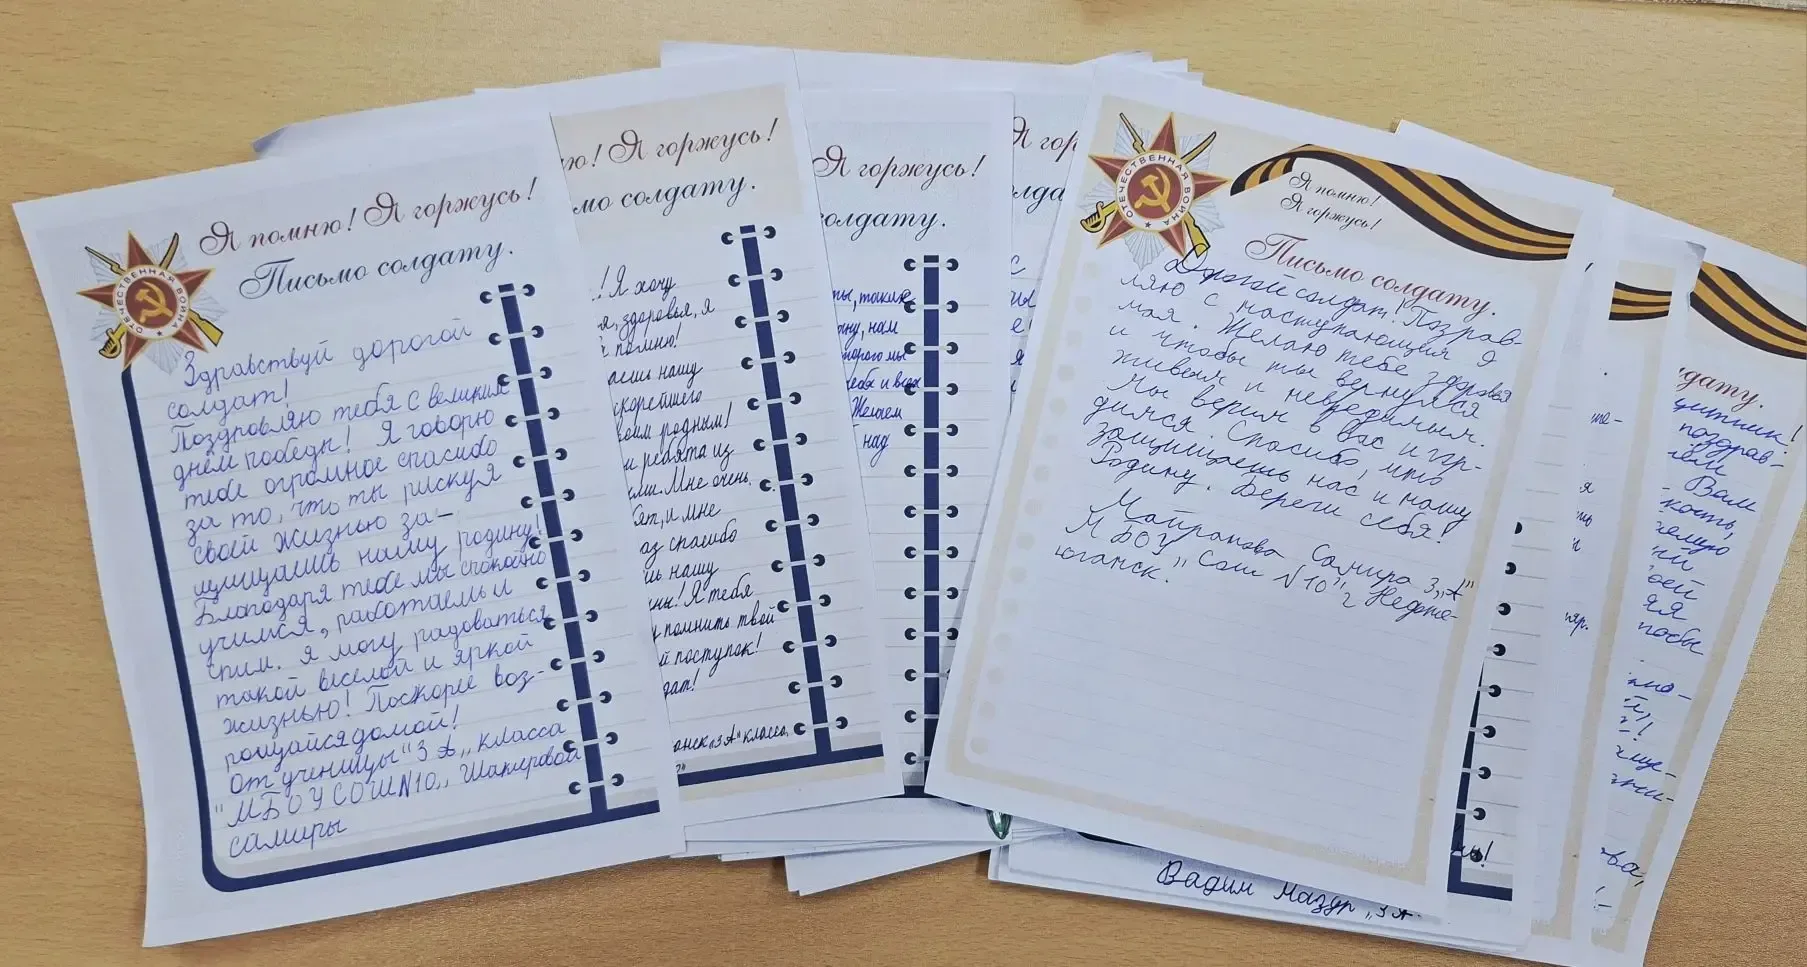 Я помню! Я горжусь!
Письмо солдату.
ОТЕЧЕСТВЕННАЯ ВОЙНА
Здравствуй дорогой
солдат!
Поздровляю тебя с великим
днём победы! Я говорю
тебе огромное спасибо
за то, что ты рискуя
своей жизнью за-
щищаешь нашу родину!
Благодаря тебе мы спокойно
учимся, работаем и
спим. я могу радоваться
такой веселой и яркой
жизнью! Поскорее воз-
ращайся домой!
От ученицы "3 А,, класса
"МБОУ СОШ N10,, Шакировой
самиры
ю! Я горжусь!
мо солдату.
! Я хочу
я, здоровья, я
помню!
аешь нашу
скорейшего
воим родным!
и ребята из
Мне очень
ят, и мне
аз спасибо
шь нашу
ны! Я тебя
у помнить твой
й поступок!
дат!
анск "3 А" класса,
Я горжусь!
солдату.
ты, таких
ну, нам
торого мы
тебя и всех
Желаем
над
Я гор
солда
ОТЕЧЕСТВЕННАЯ ВОЙНА
Я помню!
Я горжусь!
Письмо солдату.
Дорогой солдат! Поздрав-
ляю с наступающим 9
мая. Желаю тебе здоровья
и чтобы ты вернулся
живым и невредимым.
Мы верим в вас и гор-
димся. Спасибо, что
защищаешь нас и нашу
Родину. Береги себя!
Самира 3 "А"
МБОУ "Сош N10" г Нефте-
юганск.
Вадим Мазур "3 А
ны!
лдату.
щитник!
поздрав-
Вам
кость,
ей
яя
ва,